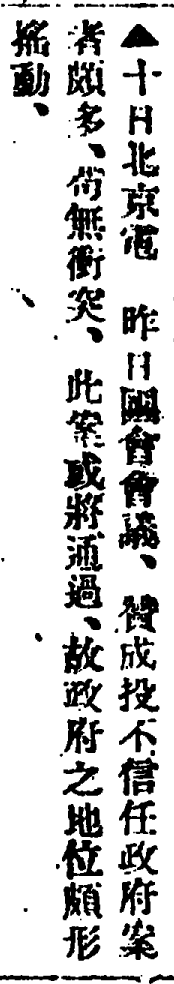 ▲十日北京電　昨日國會會議、贊成投不信任政府案
者頗多、尙無衝突、此案或將通過、故政府之地位頗形
搖動、